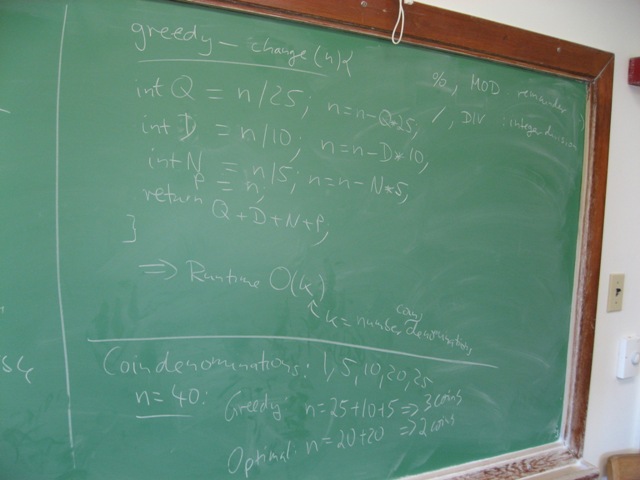 greedy - change (n) {
%, MOD remainder
int Q = n/25; n=n-Q*25;
/, DIV : integer division
int D = n/10; n=n-D*10,
int N = n/5; n=n-N*5,
P = n;
return Q+D+N+P,
}
=> Runtime O(k)
k = number coin denominations
Coin denominations: 1, 5, 10, 20, 25
n=40: Greedy: n=25+10+5 => 3 coins
Optimal: n=20+20 => 2 coins